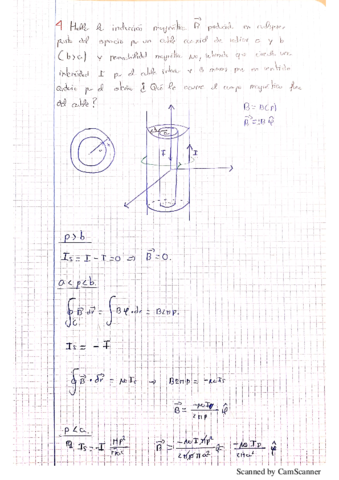 4 Halle la inducción magnética B⃗ producida en cualquier
punto del espacio por un cable coaxial de radios a y b
(b>a) y permeabilidad magnética μ₀, sabiendo que circula una
intensidad I por el cable interior y la misma pero en sentido
por el exterior ¿Qué le ocurre al campo magnético fuera
del cable?
B = B(ρ)
B⃗ = B φ̂
I
I
ρ>b
I_S = I - I = 0 ⇒ B⃗ = 0.
a<ρ<b
∮_C B⃗·dr⃗ = ∫ B φ·dr = B2πρ.
I_S = -I
∮ B⃗·dr⃗ = μI_S → B2πρ = -μI
B⃗ = -μI/2πρ φ̂
ρ<a
I_S = -I πρ²/πa² B⃗ = -μIπρ²/2πρπa² φ̂ = -μIρ/2πa² φ̂
Scanned by CamScanner